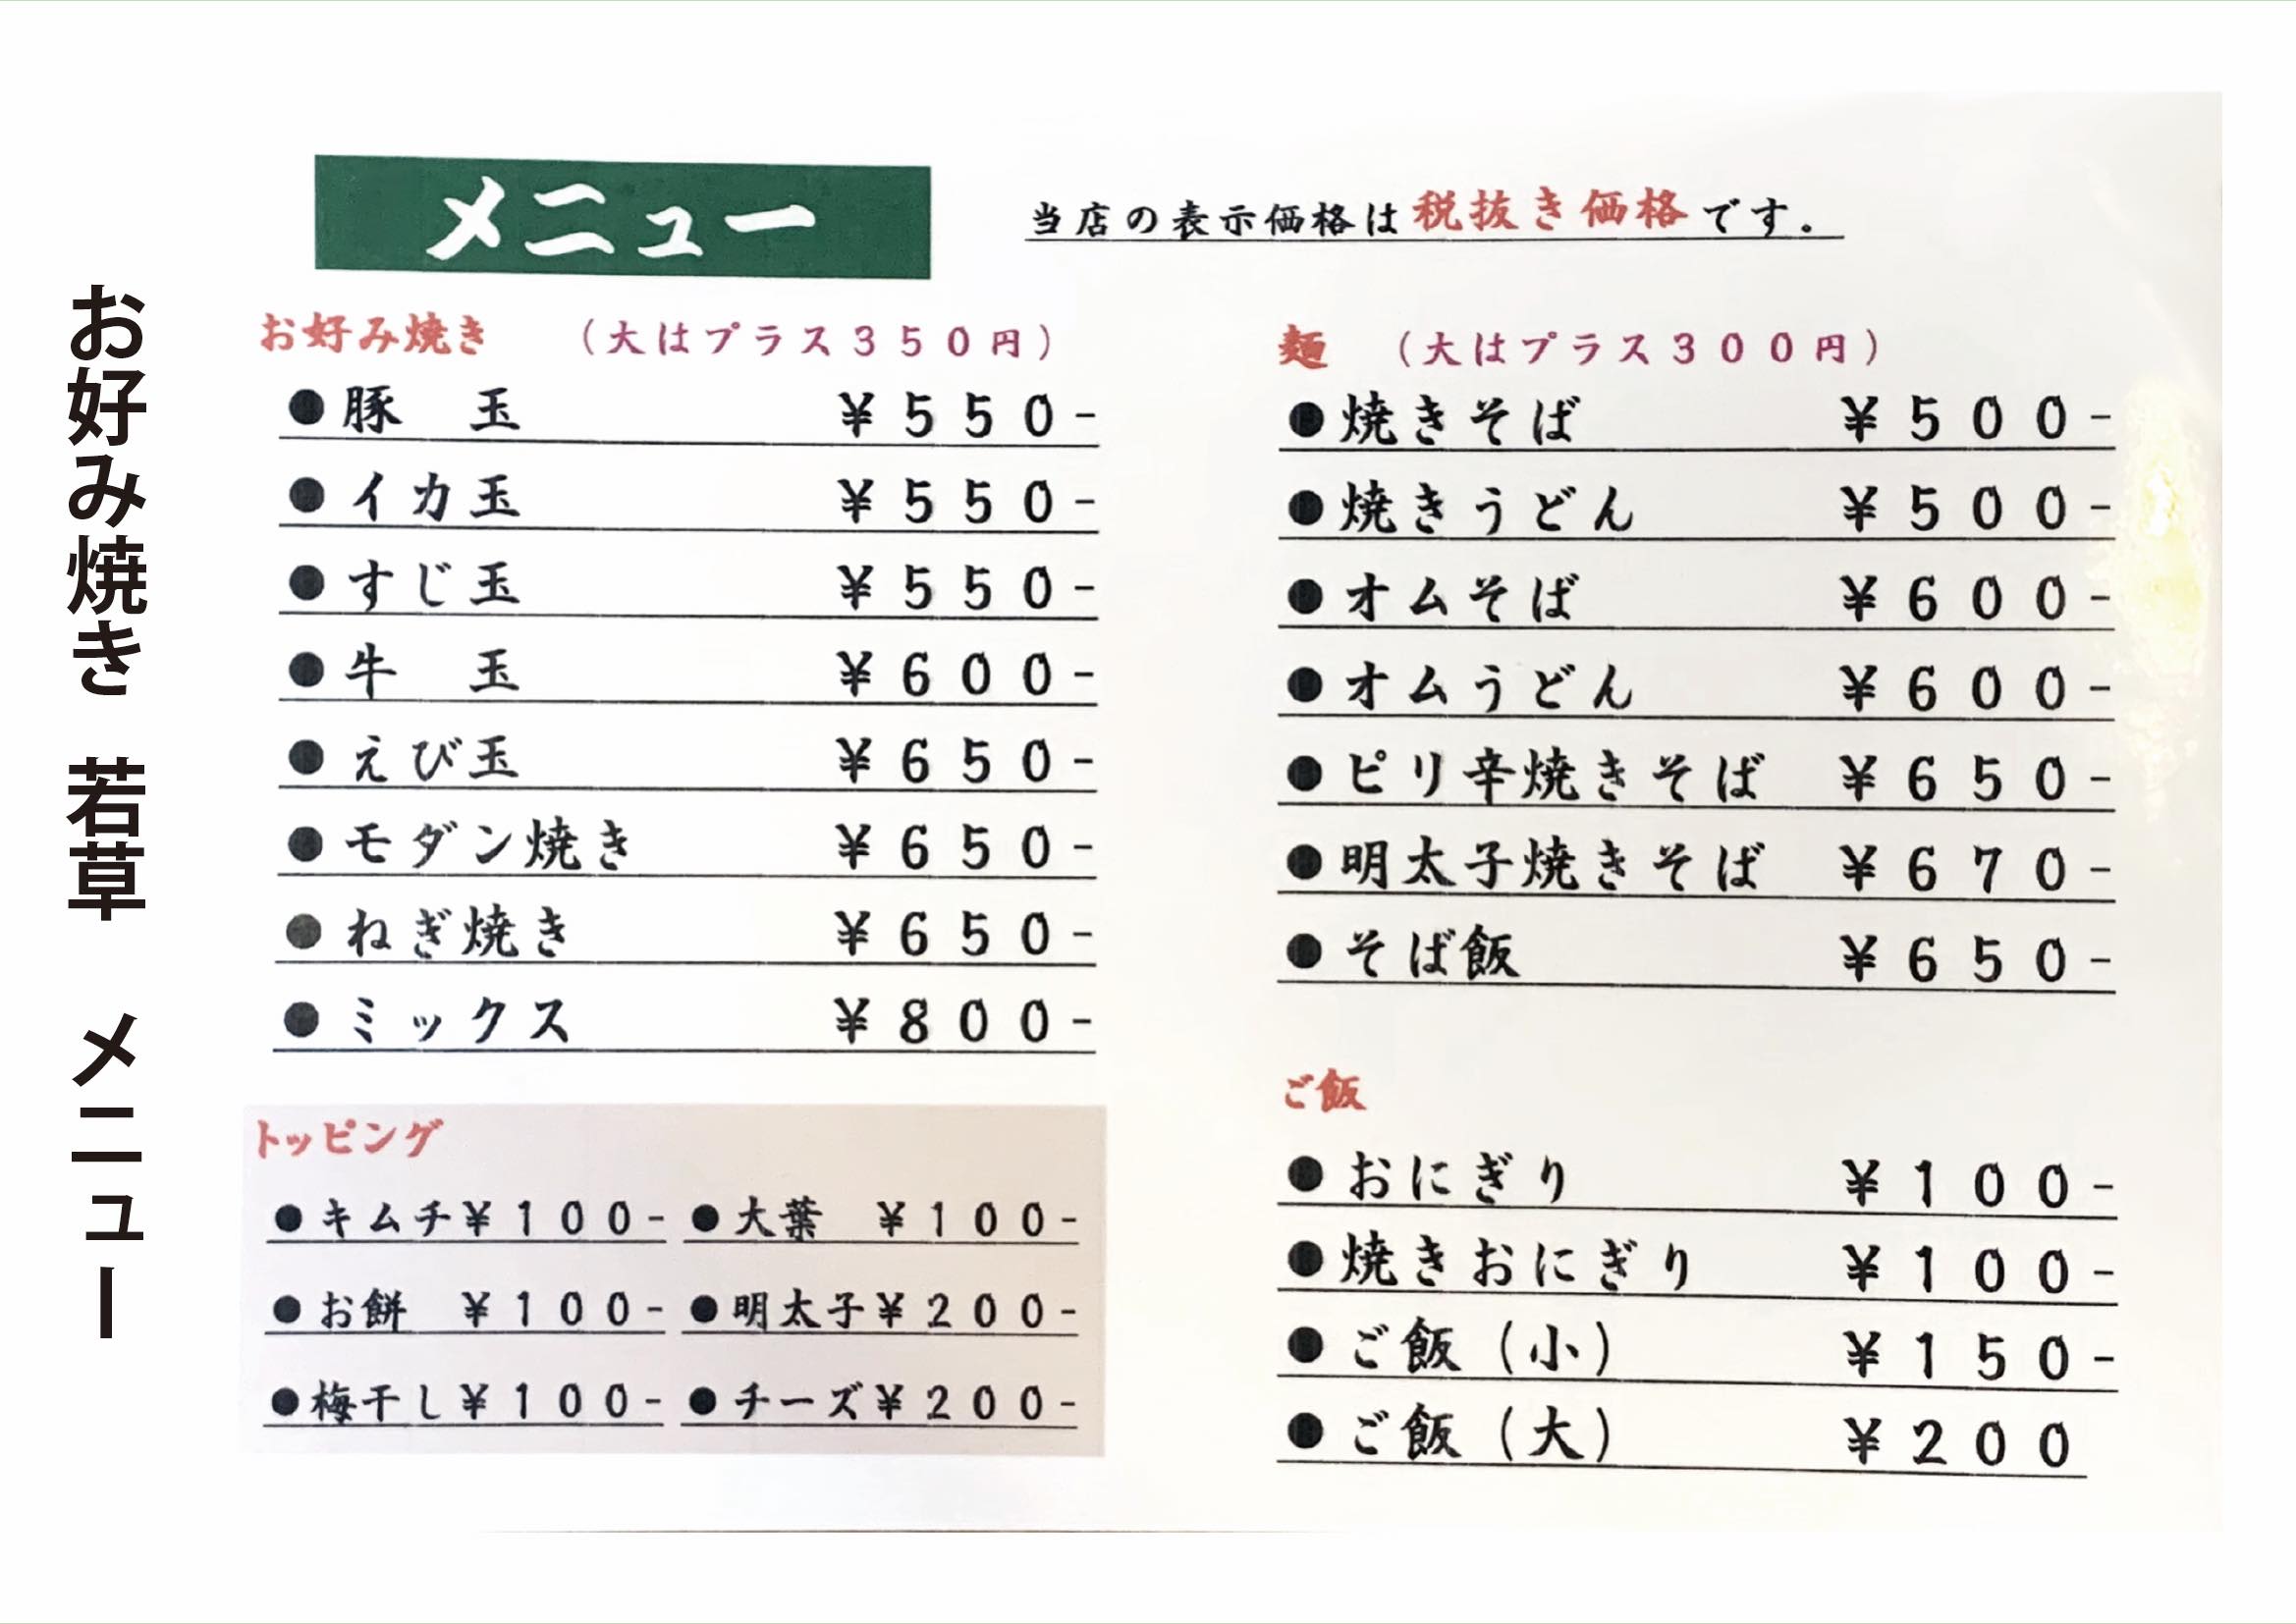 お好み焼き　若草　メニュー
メニュー
当店の表示価格は税抜き価格です．
お好み焼き　（大はプラス３５０円）
●豚　玉　￥５５０-
●イカ玉　￥５５０-
●すじ玉　￥５５０-
●牛　玉　￥６００-
●えび玉　￥６５０-
●モダン焼き　￥６５０-
●ねぎ焼き　￥６５０-
●ミックス　￥８００-
トッピング
●キムチ￥１００-　●大葉　￥１００-
●お餅　￥１００-　●明太子￥２００-
●梅干し￥１００-　●チーズ￥２００-
麺　（大はプラス３００円）
●焼きそば　￥５００-
●焼きうどん　￥５００-
●オムそば　￥６００-
●オムうどん　￥６００-
●ピリ辛焼きそば　￥６５０-
●明太子焼きそば　￥６７０-
●そば飯　￥６５０-
ご飯
●おにぎり　￥１００-
●焼きおにぎり　￥１００-
●ご飯（小）　￥１５０-
●ご飯（大）　￥２００